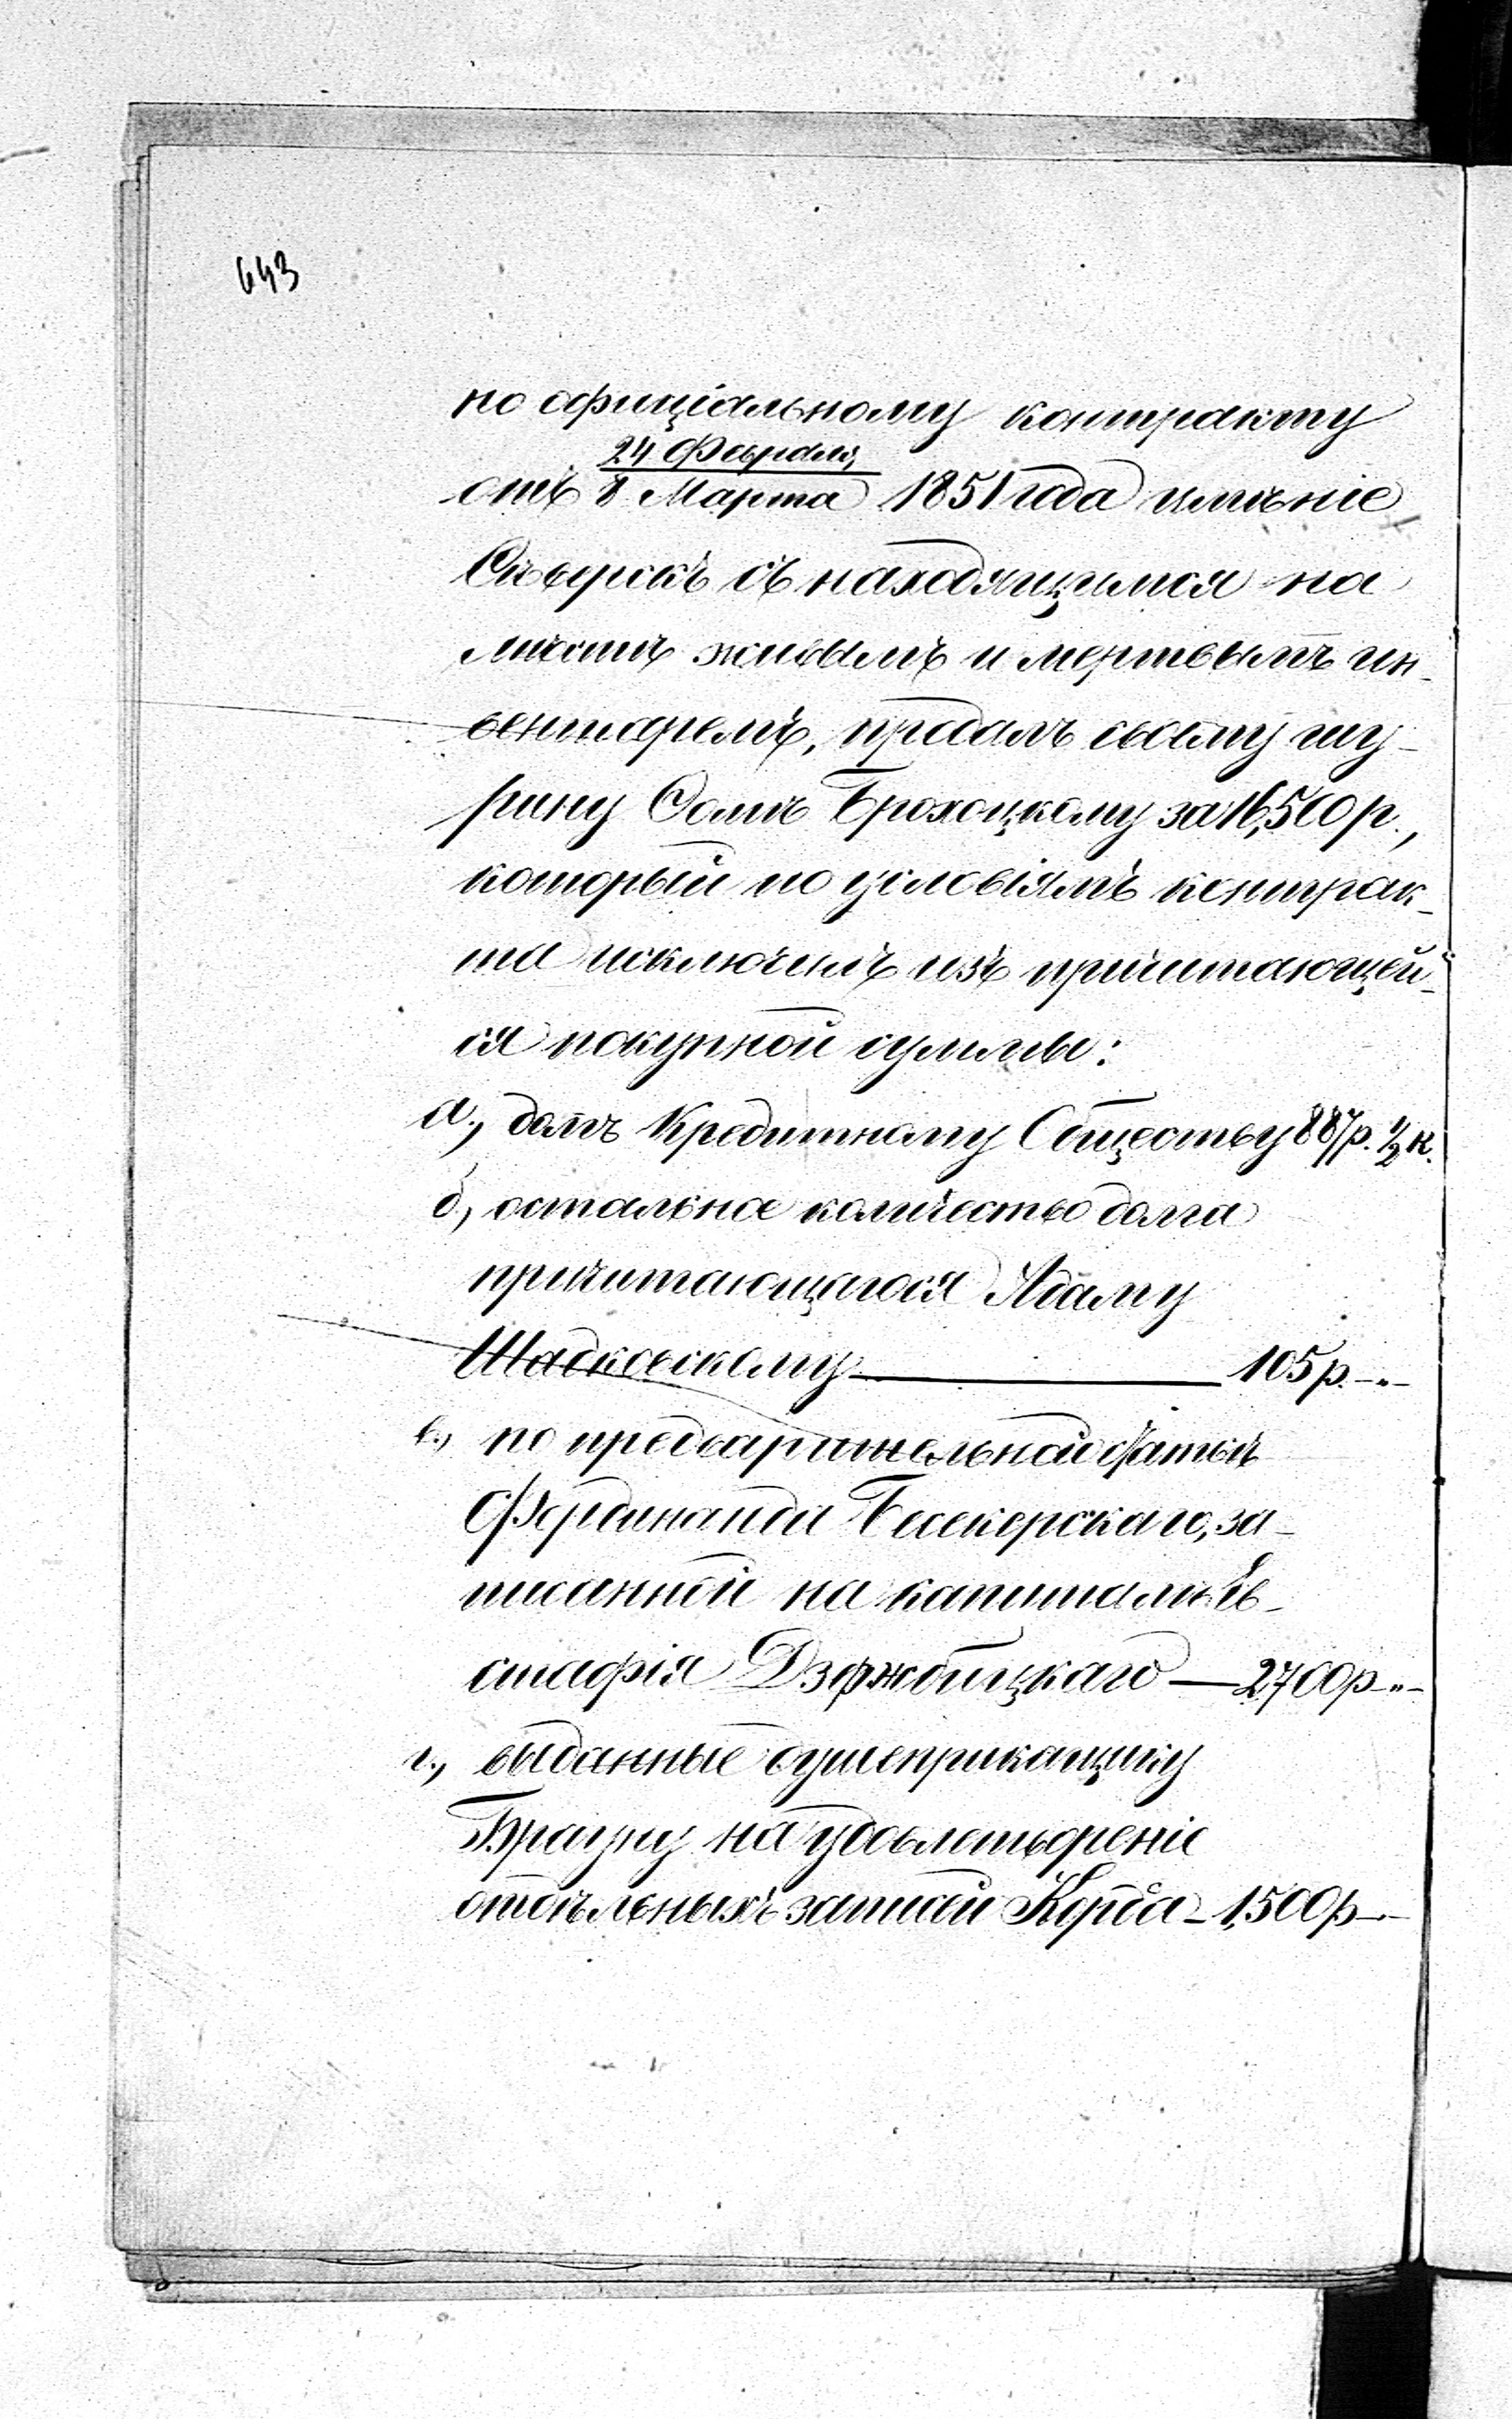 643
по офиціальному контракту
24 Февраля,
отъ 8 Марта 1851 года имѣніе
Сѣверскъ съ находящимся на
мѣстѣ живымъ и мертвымъ ин-
вентаремъ, продалъ своему шу-
рину Сомѣ Брохоцкому за 16,500 р.,
который по условіямъ контрак-
та исключилъ изъ причитающей-
ся покупной суммы:
а., долгъ Кредитному Обществу 887 р. 1/2 к.
б., остальное количество долга
причитающагося Адаму
Шадковскому — 105 р. -"-
в., по предварительной статьѣ
Фердинанда Бесекерскаго, за-
писанной на капиталѣ Ев-
стафія Дзержбицкаго — 2,700 р -"-
г., выданные душеприкащику
Брауну на удовлетвореніе
отдѣльныхъ записей Корба - 1,500 р -"-